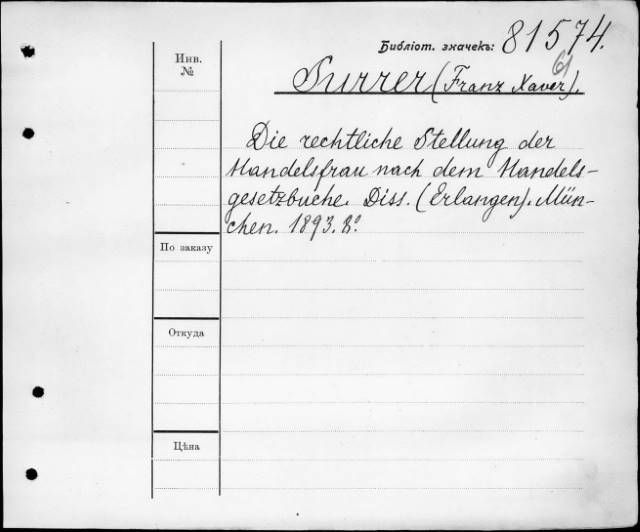 Библіот. значекъ: 81574.
61
Инв.
№
Purrer (Franz Xaver).
Die rechtliche Stellung der
Handelsfrau nach dem Handels-
gesetzbuche. Diss. (Erlangen). Mün-
chen. 1893. 8º.
По заказу
Откуда
Цѣна